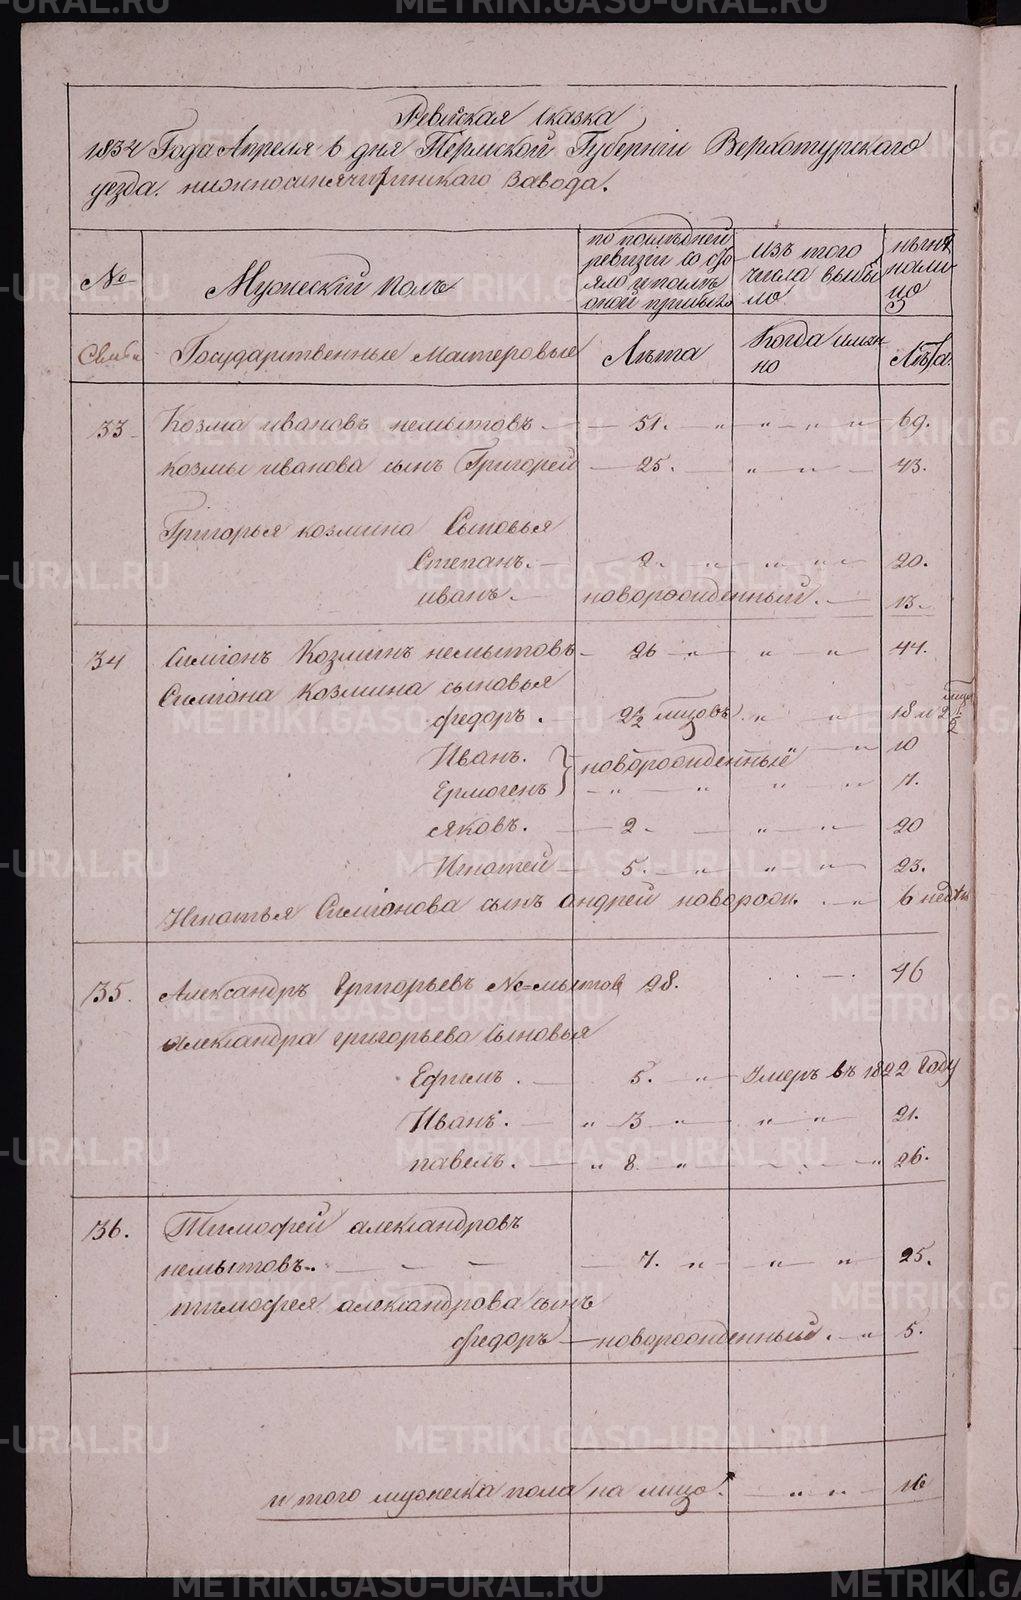 Ревиская Сказка
1834 Года Апреля 6 дня Пермской Губернiи Верхотурскаго
уезда. нижносинячихинскаго завода.
№
Мужескiй полъ
по последней ревизiи состояло и после оной прибыло
Изъ того числа выбыло
ныне налицо
Семьи
Государственные мастеровые
Лѣта
Когда имянно
Лѣта.
33 Козма ивановъ немытовъ — 51. „ „ „ „ 69.
козмы иванова сынъ Григорей — 25. „ „ 43.
Григорья козмина Сыновья
Степанъ. — 2. „ „ „ 20.
иванъ. — новорожденный. — 13.
34 Симионъ Козминъ немытовъ — 26 „ „ „ 44.
Симиона Козмина сыновья
федоръ. — 2 1/2 мцовъ. „ „ 18 и 2 1/2
Иванъ. новорожденные „ 10
Ермогенъ — „ „ „ „ 7.
Яковъ. — 2 — „ „ 20
Игнатей — 5. „ „ „ 23.
Игнатья Симионова сынъ андрей поворож. „ 6 недѣль
35. Александръ Григорьевъ Не=мытов 28. 46
александра григорьева Сыновья
Ефимъ. — 5. „ Умеръ въ 1822 Году
Иванъ. — „ 3 „ „ „ 21.
павелъ. — „ 8. „ „ 26.
36. Тимофей александровъ
немытовъ.. — — — 7. „ „ „ 25.
тимофея александрова сынъ
федоръ — новорожденный. „ 5.
и того мужеска пола на лицо. — „ „ 16
METRIKI.GASO-URAL.RU